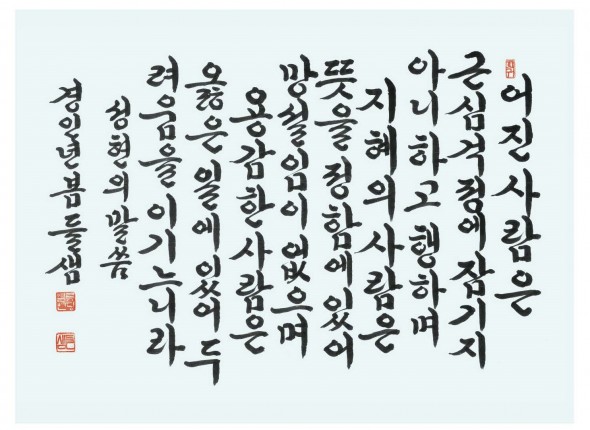 어진사람은
근심걱정에 잠기지
아니하고 행하며
지혜의 사람은
뜻을 정함에 있어
망설임이 없으며
용감한 사람은
옳은 일에 있어 두
려움을 이기느니라
성현의 말씀
경인년 봄 들샘